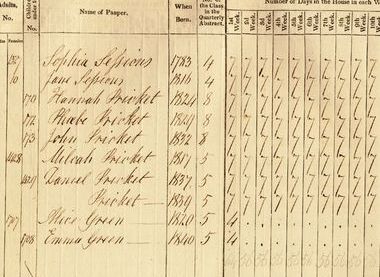 Adults,
No.
Name of Pauper.
When
Born.
the Class
in the
Quarterly
Abstract.
Number of Days in the House in each W
1st Week. 2d Week. 3d Week. 4th Week. 5th Week. 6th Week. 7th Week. 8th Week. 9th Week. 10th Week.
Sophia Sessions 1783 4 7 7 7 7 7 7 7 7 7 7
10 Jane Sessions 1816 4 7 7 7 7 7 7 7 7 7 7
170 Hannah Pricket 1824 8 7 7 7 7 7 7 7 7 7 7
172 Phœbe Pricket 1829 8 7 7 7 7 7 7 7 7 7 7
173 John Pricket 1832 8 7 7 7 7 7 7 7 7 7 7
1428 Milcah Pricket 1817 5 7 7 7 7 7 7 7 7 7 7
1429 Daniel Pricket 1837 5 7 7 7 7 7 7 7 7 7 7
Pricket — 1839 5 7 7 7 7 7 7 7 7 7 7
1707 Alice Green 1820 5 4
1708 Emma Green — 1840 5 4